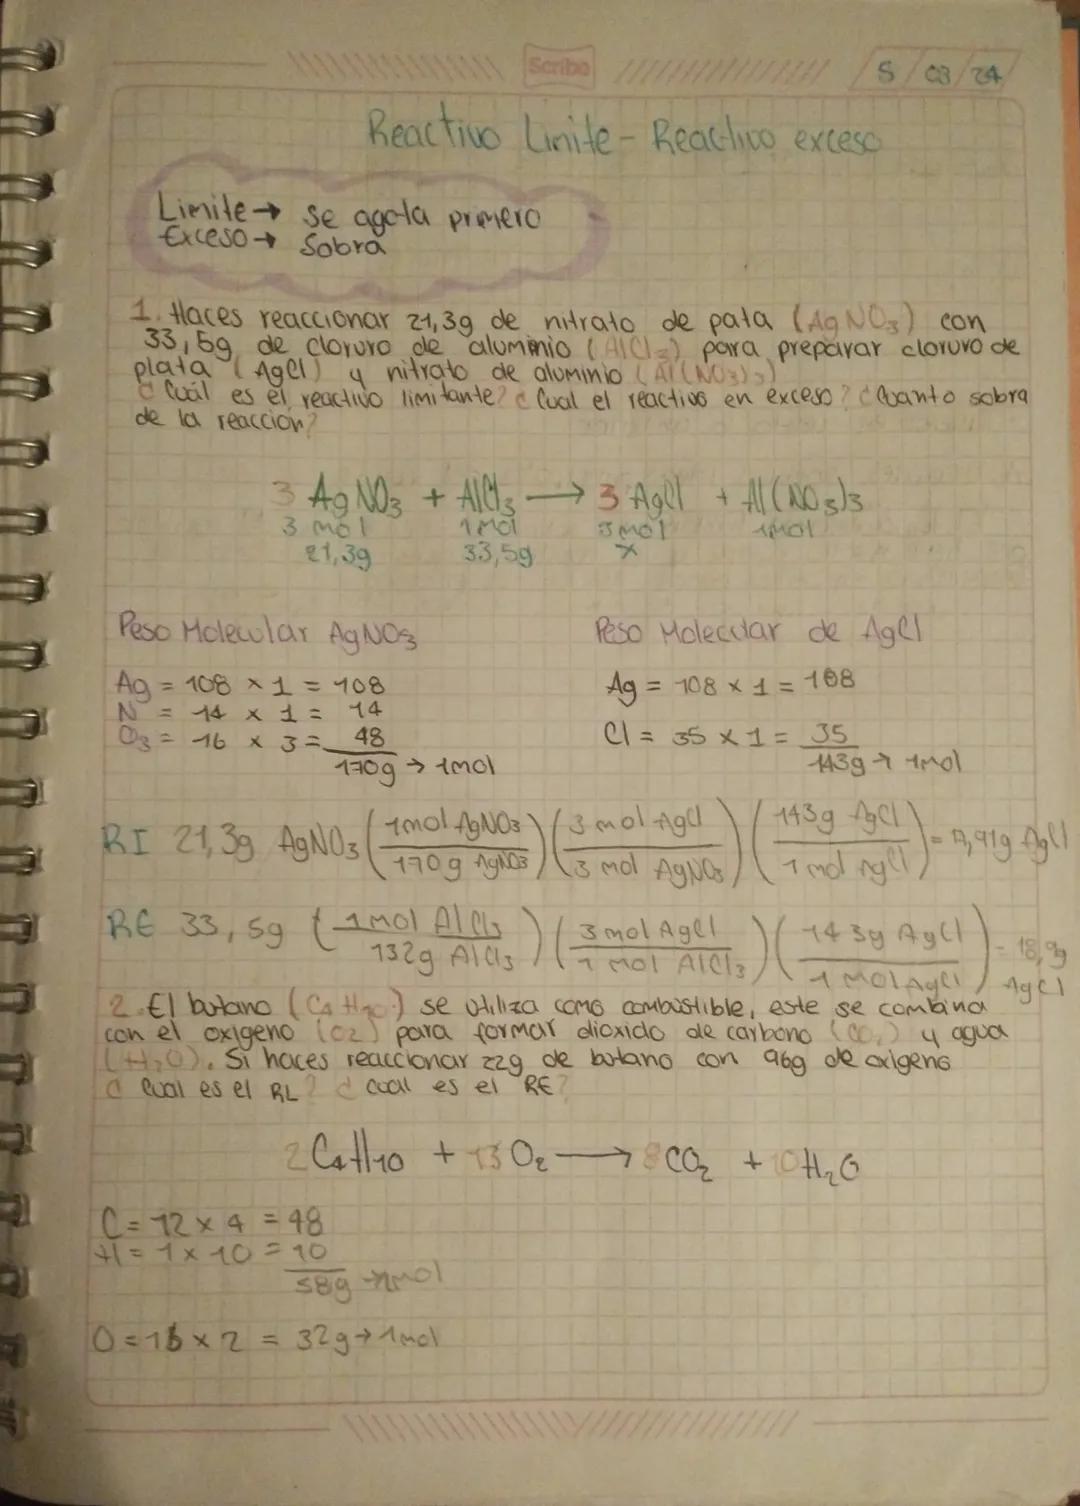 Scribe
5 / 03 / 24
Reactivo Limite - Reactivo exceso
Limite → se agota primero
Exceso → Sobra
1. Haces reaccionar 21,3g de nitrato de pata (AgNO3) con
33,5g de cloruro de aluminio (AlCl3) para preparar cloruro de
plata (AgCl) y nitrato de aluminio (Al(NO3)3)
¿Cuál es el reactivo limitante? ¿Cual el reactivo en exceso? ¿Cuanto sobra
de la reaccion?
3 AgNO3 + AlCl3 → 3 AgCl + Al(NO3)3
3 mol 1 mol 3 mol 1mol
21,3g 33,5g x
Peso Molecular AgNO3 Peso Molecular de AgCl
Ag = 108 x 1 = 108 Ag = 108 x 1 = 108
N = 14 x 1 = 14
O3 = 16 x 3 = 48 Cl = 35 x 1 = 35
170g → 1mol 143g → 1mol
RI 21,3g AgNO3 (1mol AgNO3 / 170g AgNO3) (3 mol AgCl / 3 mol AgNO3) (143g AgCl / 1 mol AgCl) = 17,91g AgCl
RE 33,5g (1mol AlCl3 / 132g AlCl3) (3 mol AgCl / 1 mol AlCl3) (143g AgCl / 1 mol AgCl) = AgCl
2. El butano (C4H10) se utiliza como combustible, este se combina
con el oxigeno (O2) para formar dioxido de carbono (CO2) y agua
(H2O). Si haces reaccionar 22g de butano con 96g de oxigeno
¿Cual es el RL? ¿cual es el RE?
2C4H10 + 13 O2 → 8CO2 + 10H2O
C = 12 x 4 = 48
H = 1 x 10 = 10
58g → 1mol
O = 16 x 2 = 32g → 1mol